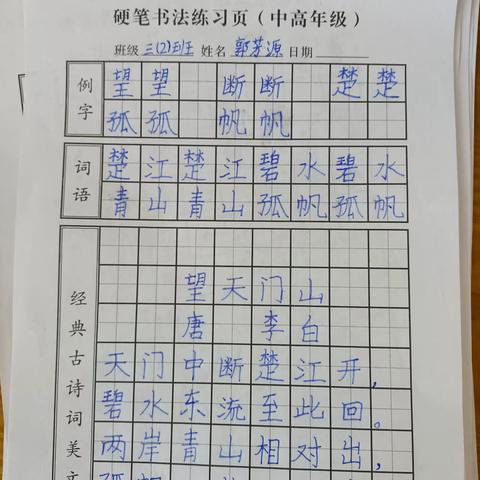 硬笔书法练习页（中高年级）
班级 三(2)班 姓名 郭芳源 日期
例字
望 望 断 断 楚 楚
孤 孤 帆 帆
词语
楚 江 楚 江 碧 水 碧 水
青 山 青 山 孤 帆 孤 帆
经典古诗词美文
望 天 门 山
唐 李 白
天 门 中 断 楚 江 开，
碧 水 东 流 至 此 回。
两 岸 青 山 相 对 出，